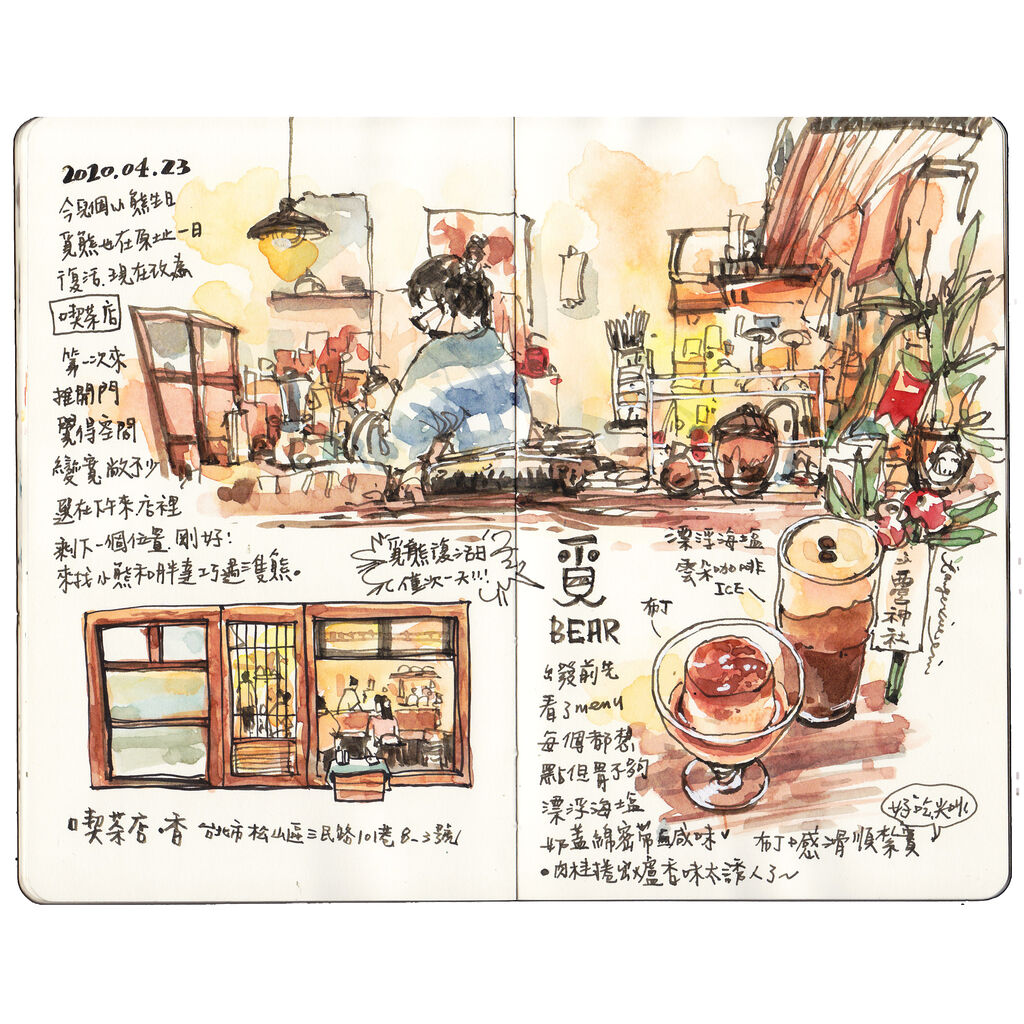 2020.04.23
今天是個小熊生日
覓熊也在原址一日
復活.現在改為
喫茶店
第二次來
推開門
覺得空間
變寬敞不少
選在下午來店裡
剩下一個位置.剛好!
來找小熊和胖達巧遇三隻熊。
覓熊復活日
僅次一天!!!
喫茶店.香 台北市松山區三民路101巷8-3號
漂浮海塩
雲朵咖啡
ICE
布丁
覓
BEAR
出發前先
看了menu
每個都想
點但胃不夠
漂浮海塩
奶蓋綿密帶點咸味
•肉桂捲出爐香味太誘人了~
靈神社
好吃
布丁口感滑順紮實